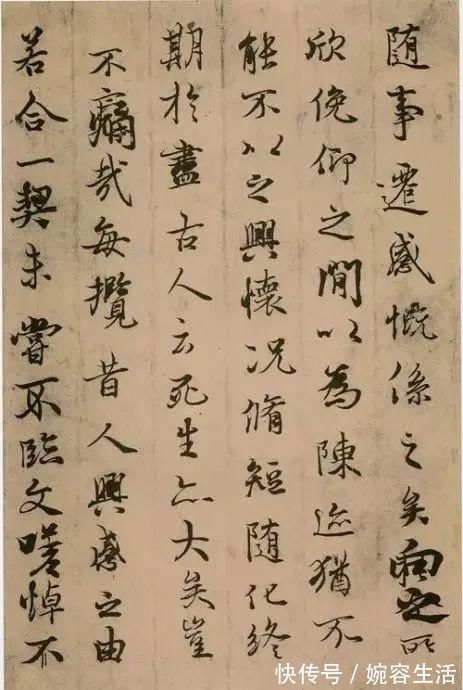 随事遷感慨係之矣向之所
欣俛仰之閒以為陳迹猶不
能不以之興懷况脩短随化終
期於盡古人云死生亦大矣豈
不痛哉每攬昔人興感之由
若合一契未嘗不臨文嗟悼不
快传号/婉容生活